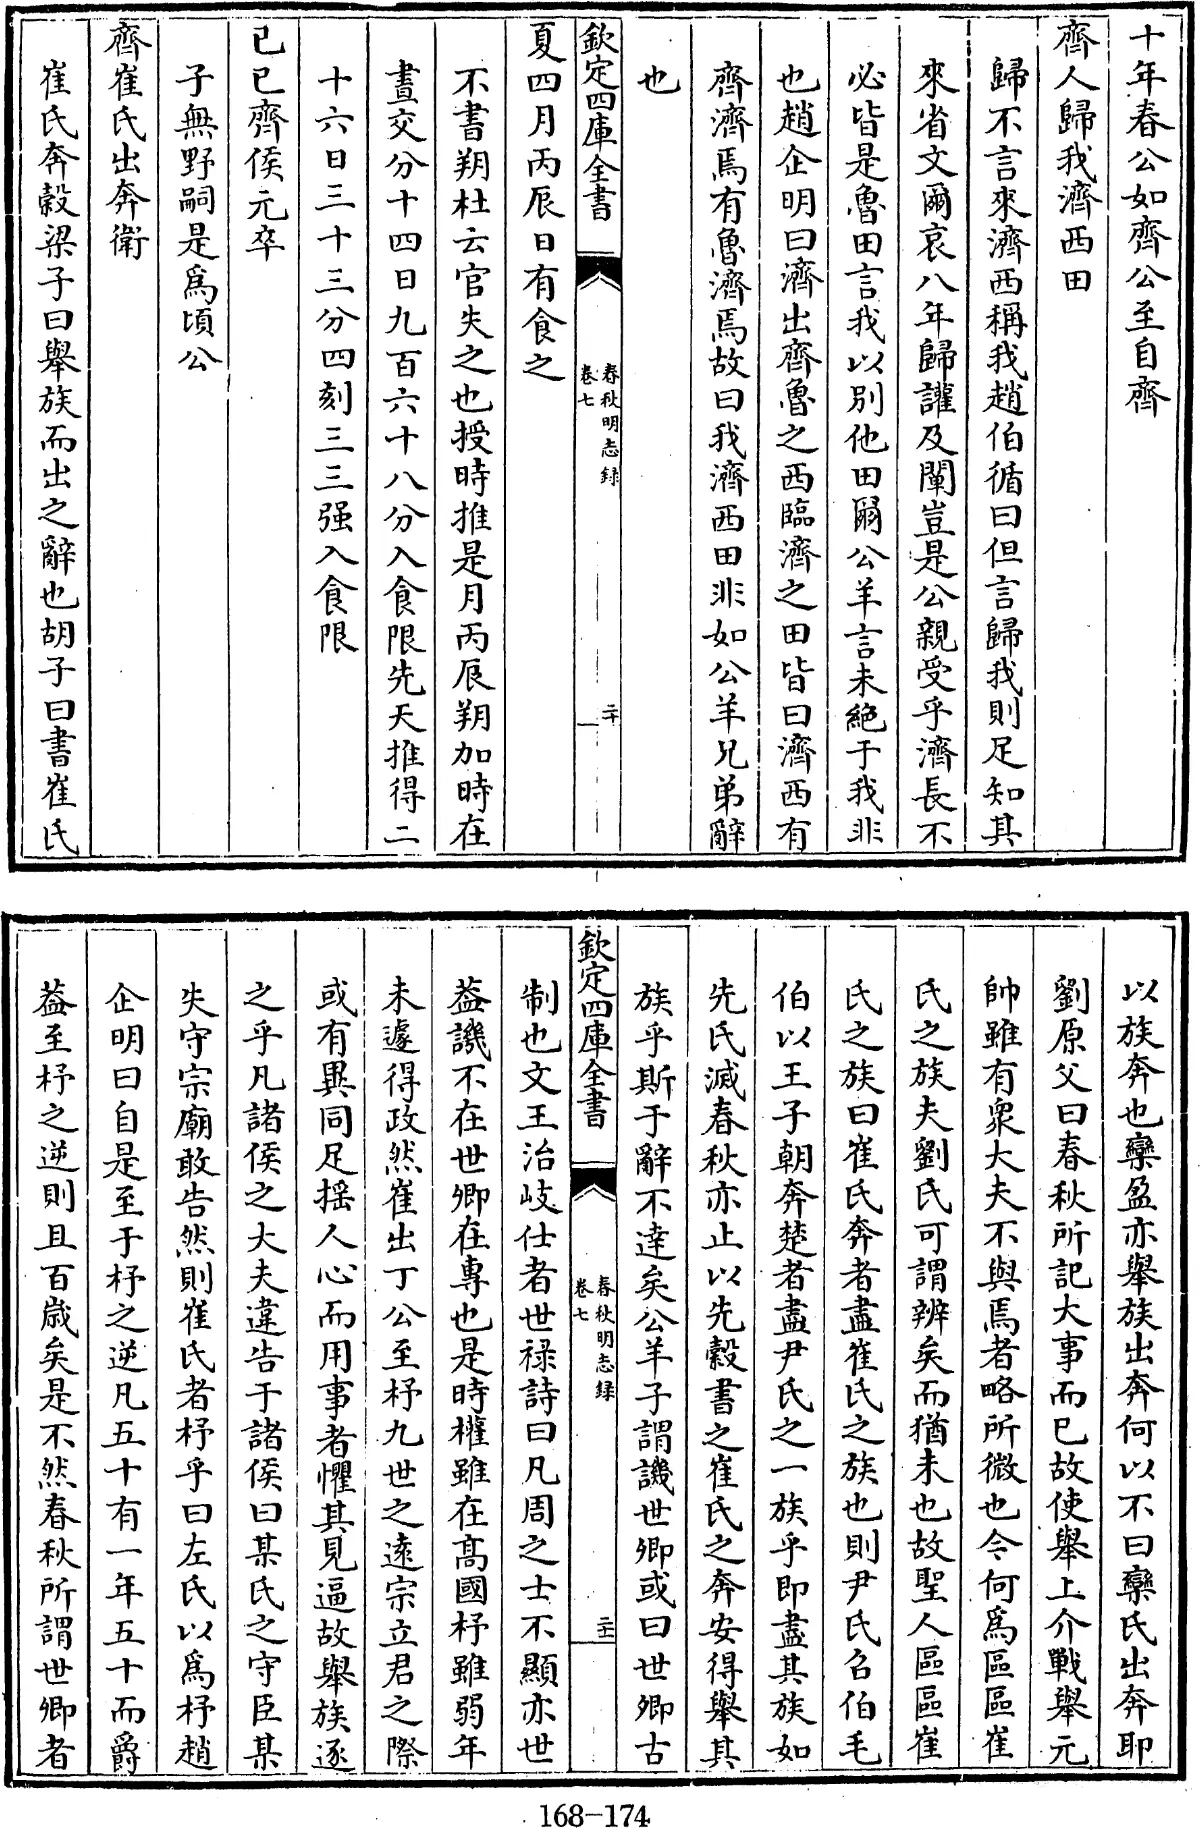 十年春公如齊公至自齊
齊人歸我濟西田
歸不言來濟西稱我趙伯循曰但言歸我則足知其
來省文爾哀八年歸讙及闡豈是公親受乎濟長不
必皆是魯田言我以別他田爾公羊言未絶于我非
也趙企明曰濟出齊魯之西臨濟之田皆曰濟西有
齊濟焉有魯濟焉故曰我濟西田非如公羊兄弟辭
也
欽定四庫全書
春秋明志録
卷七
二十
夏四月丙辰日有食之
不書朔杜云官失之也授時推是月丙辰朔加時在
晝交分十四日九百六十八分入食限先天推得二
十六日三十三分四刻三三强入食限
已巳齊侯元卒
子無野嗣是為頃公
齊崔氏出奔衛
崔氏奔穀梁子曰舉族而出之辭也胡子曰書崔氏
以族奔也欒盈亦舉族出奔何以不曰欒氏出奔耶
劉原父曰春秋所記大事而已故使舉上介戰舉元
帥雖有衆大夫不與焉者略所微也今何為區區崔
氏之族夫劉氏可謂辨矣而猶未也故聖人區區崔
氏之族曰崔氏奔者盡崔氏之族也則尹氏召伯毛
伯以王子朝奔楚者盡尹氏之一族乎即盡其族如
先氏滅春秋亦止以先縠書之崔氏之奔安得舉其
族乎斯于辭不逹矣公羊子謂譏世卿或曰世卿古
欽定四庫全書
春秋明志録
卷七
二十一
制也文王治岐仕者世禄詩曰凡周之士不顯亦世
葢譏不在世卿在專也是時權雖在髙國杼雖弱年
未遽得政然崔出丁公至杼九世之遠宗立君之際
或有異同足揺人心而用事者懼其見逼故舉族逐
之乎凡諸侯之大夫違告于諸侯曰某氏之守臣某
失守宗廟敢告然則崔氏者杼乎曰左氏以為杼趙
企明曰自是至于杼之逆凡五十有一年五十而爵
葢至杼之逆則且百歳矣是不然春秋所謂世卿者
168-174